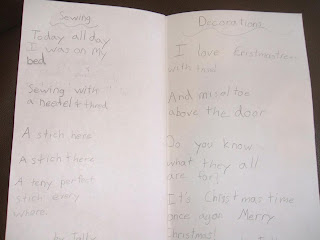 Sewing
Today all day
I was on my
bed
Sewing with
a needel + thred
A stich here
a stich there
A teny perfect
stich every
where.
by Tally
Decorations
I love Kristmastrees
with tinsl
And misaltoe
above the door
Do you know
what they all
are for?
It's Christmas time
once again Merry
Christmas!